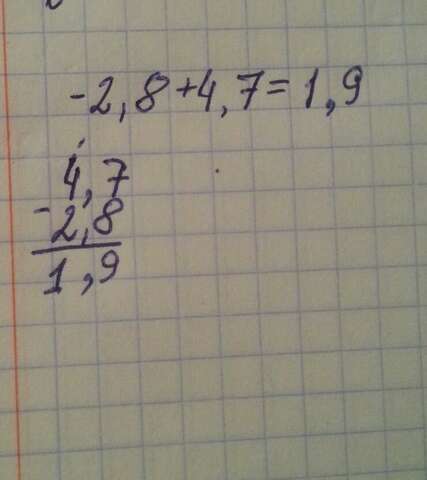 -2,8+4,7=1,9
4,7
-2,8
1,9